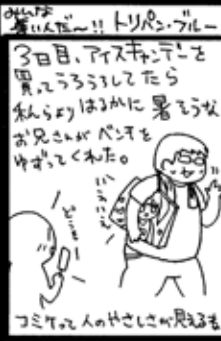 みんな
暑いんだ～!! トリパン・ブルー
3日目、アイスキャンデーを
買ってうろうろしてたら
私らよりはるかに暑そうな
お兄さんが ベンチを
ゆずってくれた。
コミケって人のやさしさが見えるき